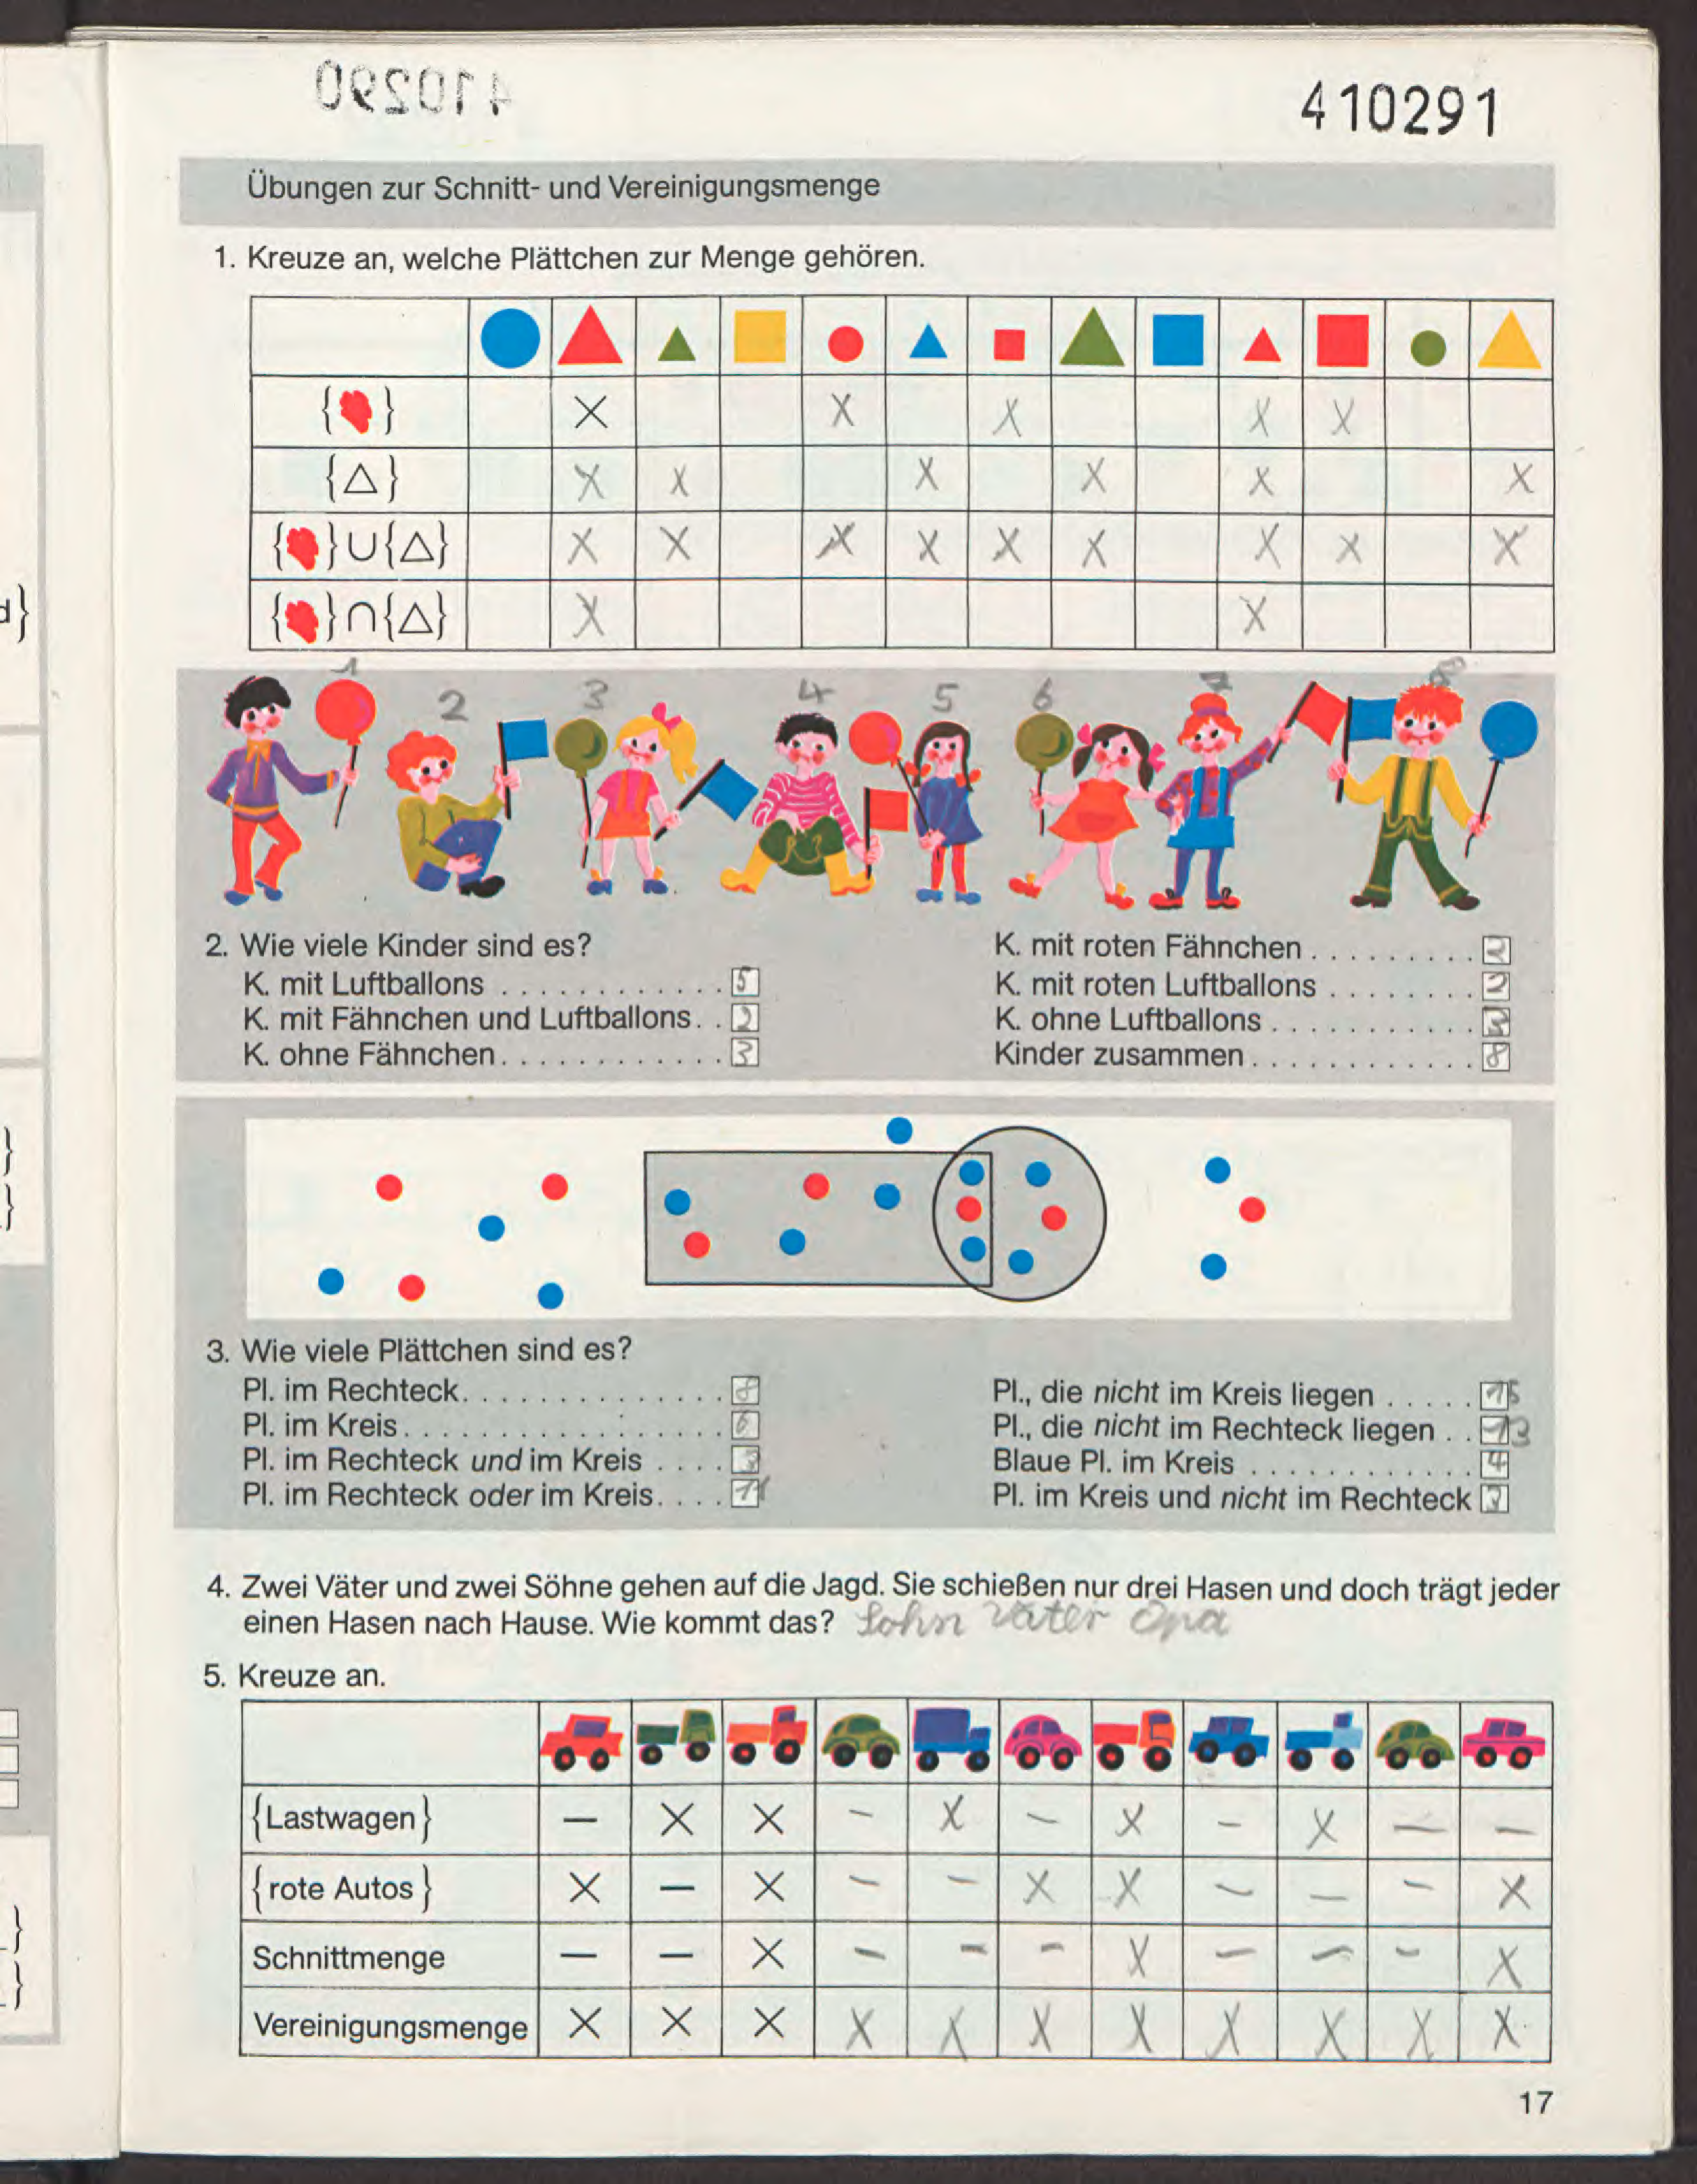 410290
410291
Übungen zur Schnitt- und Vereinigungsmenge
1. Kreuze an, welche Plättchen zur Menge gehören.
{ } X X X X X
{△} X X X X X X
{ }∪{△} X X X X X X X X X
{ }∩{△} X X
d}
1 2 3 4 5 6 7 8
2. Wie viele Kinder sind es?
K. mit Luftballons . . . . . . . . . . . . 5
K. mit Fähnchen und Luftballons. . 2
K. ohne Fähnchen. . . . . . . . . . . . 3
K. mit roten Fähnchen . . . . . . . . . 2
K. mit roten Luftballons . . . . . . . . 2
K. ohne Luftballons . . . . . . . . . . . 3
Kinder zusammen . . . . . . . . . . . . 8
3. Wie viele Plättchen sind es?
Pl. im Rechteck. . . . . . . . . . . . . . 8
Pl. im Kreis. . . . . . . . . . . . . . . . . 6
Pl. im Rechteck und im Kreis . . . . 3
Pl. im Rechteck oder im Kreis. . . . 11
Pl., die nicht im Kreis liegen . . . . . 15
Pl., die nicht im Rechteck liegen . . 13
Blaue Pl. im Kreis . . . . . . . . . . . . 4
Pl. im Kreis und nicht im Rechteck 3
4. Zwei Väter und zwei Söhne gehen auf die Jagd. Sie schießen nur drei Hasen und doch trägt jeder
einen Hasen nach Hause. Wie kommt das? Sohn Vater Opa
5. Kreuze an.
{Lastwagen} — X X — X — X — X — —
{rote Autos} X — X — — X X — — — X
Schnittmenge — — X — — — X — — — X
Vereinigungsmenge X X X X X X X X X X X
17